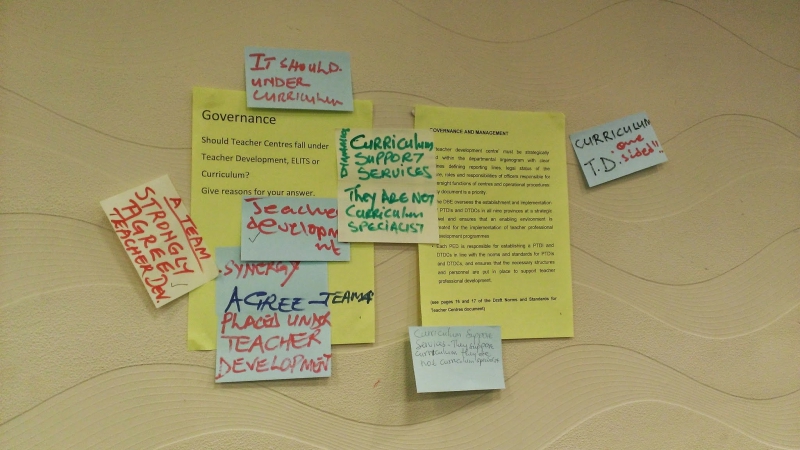 IT SHOULD.
UNDER
CURRICULUM
Governance
Should Teacher Centres fall under
Teacher Development, ELITS or
Curriculum?
Give reasons for your answer.
A TEAM
STRONGLY
AGREE
TEACHER DEV.
Teacher
development
SYNERGY
AGREE - TEAM 4
PLACED UNDER
TEACHER
DEVELOPMENT
DYNAMOS
CURRICULUM
SUPPORT
SERVICES
They ARE NOT
CURRICULUM
SPECIALIST
GOVERNANCE AND MANAGEMENT
teacher development centre must be strategically
within the departmental organogram with clear
defining reporting lines, legal status of the
roles and responsibilities of officers responsible for
oversight functions of centres and operational procedures
document is a priority.
The DBE oversees the establishment and implementation
PTDIs and DTDCs in all nine provinces at a strategic
and ensures that an enabling environment is
created for the implementation of teacher professional
development programmes
Each PED is responsible for establishing a PTDI and
DTDCs in line with the norms and standards for PTDIs
and DTDCs, and ensure that the necessary structures
and personnel are put in place to support teacher
professional development
(see pages 16 and 17 of the Draft Norms and Standards for
Teacher Centres document)
CURRICULUM
one
T.D. sided!!
Curriculum Support
Services - They support
curriculum they are
not curriculum specialist